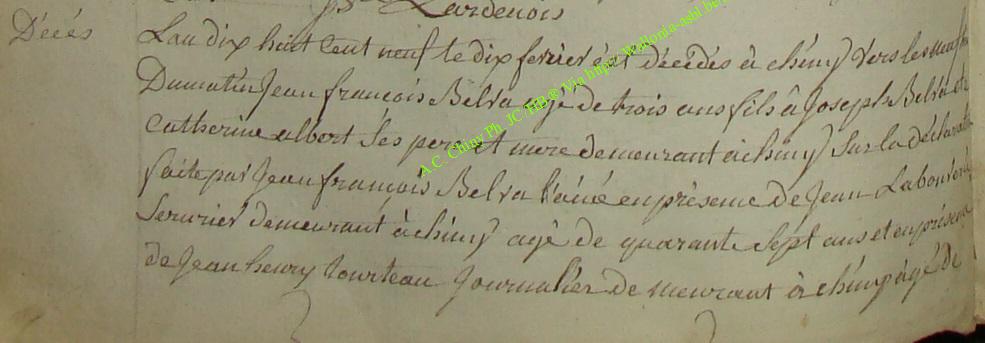 Lardenois
Décés
L'an dix huit cent neuf le dix fevrier est décédés à chiny vers les neuf
Du matin Jean françois Belva agé de trois ans fils â Joseph Belva et
Catherine albert Ses pere et mere demeurant à chiny Sur la déclaration
faite par Jean françois Belva l'ainé en présence de Jean
Serurier demeurant à chiny agé de quarante Sept ans et en présence
de Jean henry tourteau Journalier demeurant à chiny agé de
A.C. Chiny Ph. JC/HB® Via https://Wallonia-asbl.be